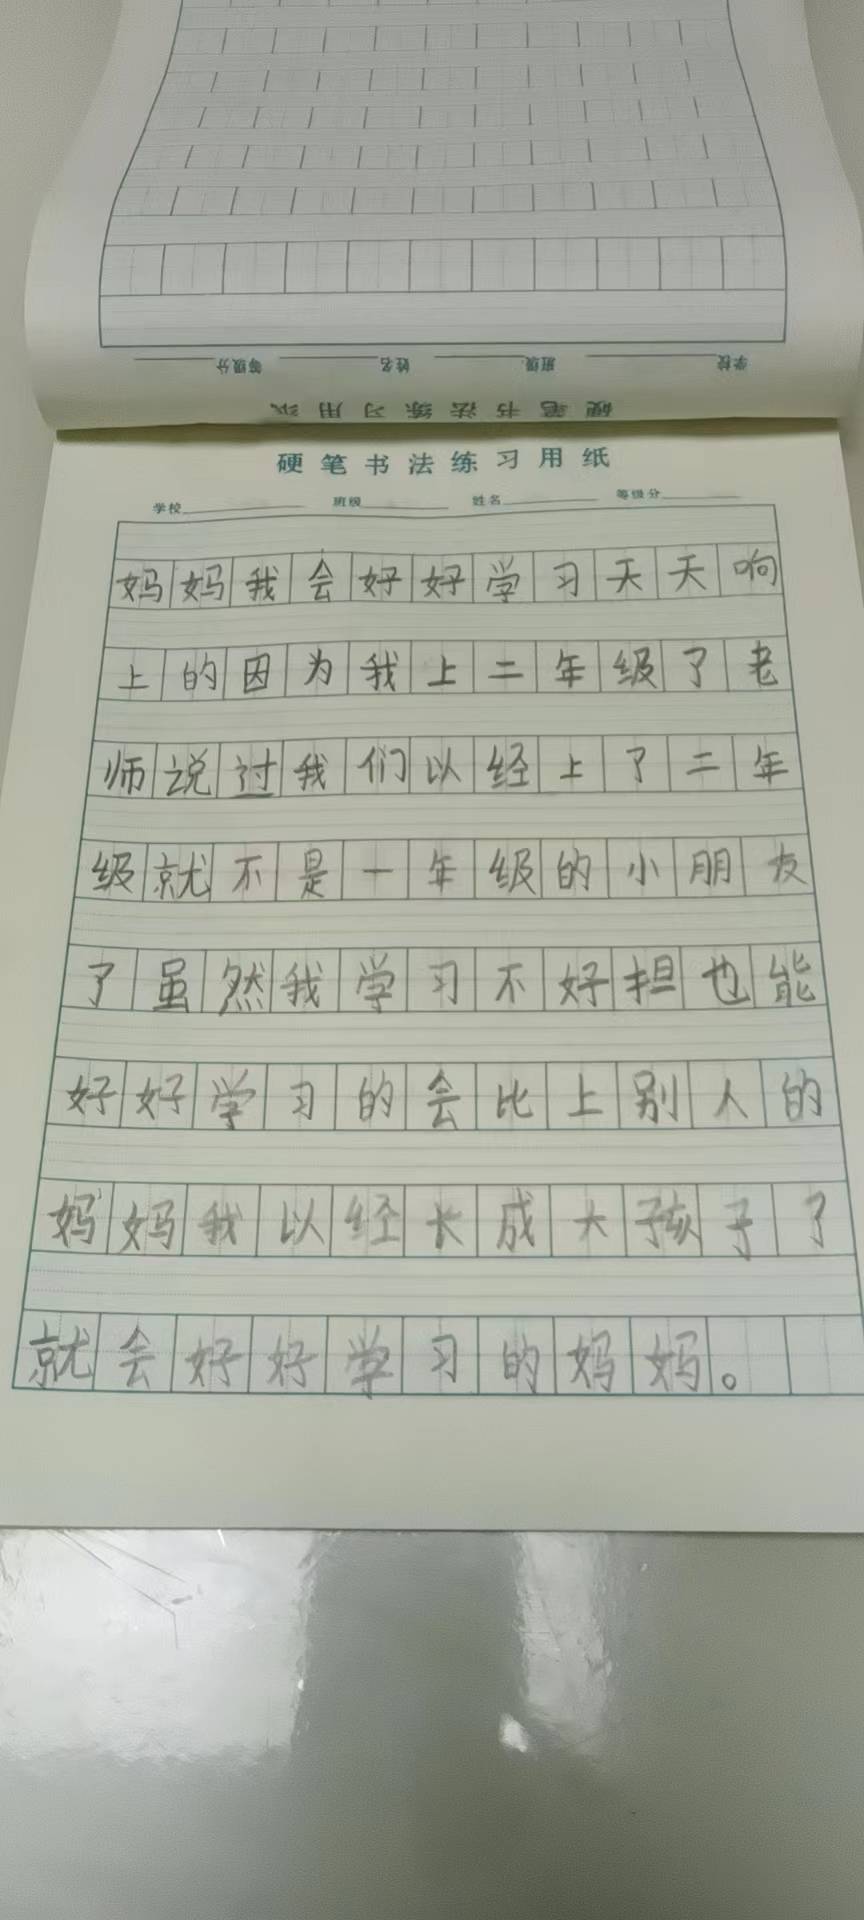 学校 班级 姓名 等级分
硬笔书法练习用纸
硬笔书法练习用纸
学校 班级 姓名 等级分
妈妈我会好好学习天天响
上的因为我上二年级了老
师说过我们以经上了二年
级就不是一年级的小朋友
了虽然我学习不好担也能
好好学习的会比上别人的
妈妈我以经长成大孩子了
就会好好学习的妈妈。